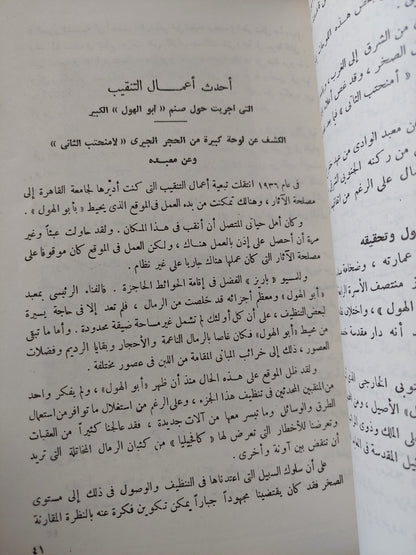 أحدث أعمال التنقيب
التى اجريت حول صنم « أبو الهول » الكبير
الكشف عن لوحة كبيرة من الحجر الجيرى « لامنحتب الثانى »
وعن معبده
فى عام ١٩٣٦ انتقلت تبعية أعمال التنقيب التى كنت أديرها لجامعة القاهرة إلى
مصلحة الآثار ، وهنالك تمكنت من بدء العمل فى الموقع الذى يحيط « بأبو الهول » .
وكان أمل حياتى المتصل أن أنقب فى هذا المكان . ولقد حاولت عبثاً وغير
مرة أن أحصل على إذن بالعمل هناك ، ولكن العمل فى الموقع كان موقوفا على
مصلحة الآثار التى كان عملها هناك جاريا على غير نظام .
وللمسيو « باريز » الفضل فى إقامة الحوائط الحاجزة . فالفناء الرئيسى بمعبد
« أبو الهول » ومعظم أجزائه قد خلصت من الرمال ، فلم تعد إلا فى حاجة يسيرة
لبعض التنظيف ، على أن كل أولئك لم تشمل غير مساحة ضيقة محدودة . وأما ما تبقى
من محيط « أبو الهول » فكان غاصا بالرمال الناعمة والأحجار وبقايا الرديم وفضلات
العصور ، ذلك إلى خرائب المبانى المقامة من اللبن فى عصور مختلفة .
ولقد ظل الموقع على هذه الحال منذ أن ظهر « أبو الهول » ، ولم يفكر واحد
من المنقبين المحدثين فى تنظيف هذا الجزء ، وعلى الرغم من استغلال ما توافر من استعمال
الطرق والوسائل وما تيسر معها من آلات جديدة ، فقد عالجنا كثيراً من العقبات
وتعرضنا للأخطار التى تعرض لها « كافيليا » من كثبان الرمال المخاتلة التى تريد
أن تنقض بين آونة وأخرى .
على أن سلوك السبيل التى اعتدناها فى التنظيف والوصول فى ذلك إلى مستوى
الصخر فقد كان يقتضينا مجهوداً جباراً يمكن تكوين فكرة عنه بالنظرة المقارنة
٤١
من الشرق إلى الغرب
الصخر ، وقد
من معبد الوادى
من ركنه الجنوبى
على الرغم من
ول وتحقيقه
عمارته ، وضخامة
منتصف الأسرة
» ، واختلاف
أنه دار مقدسة
نوبى الخارجى الذى
» الأصيل ، ومن
لى الملك وذوى
المقدسة فى